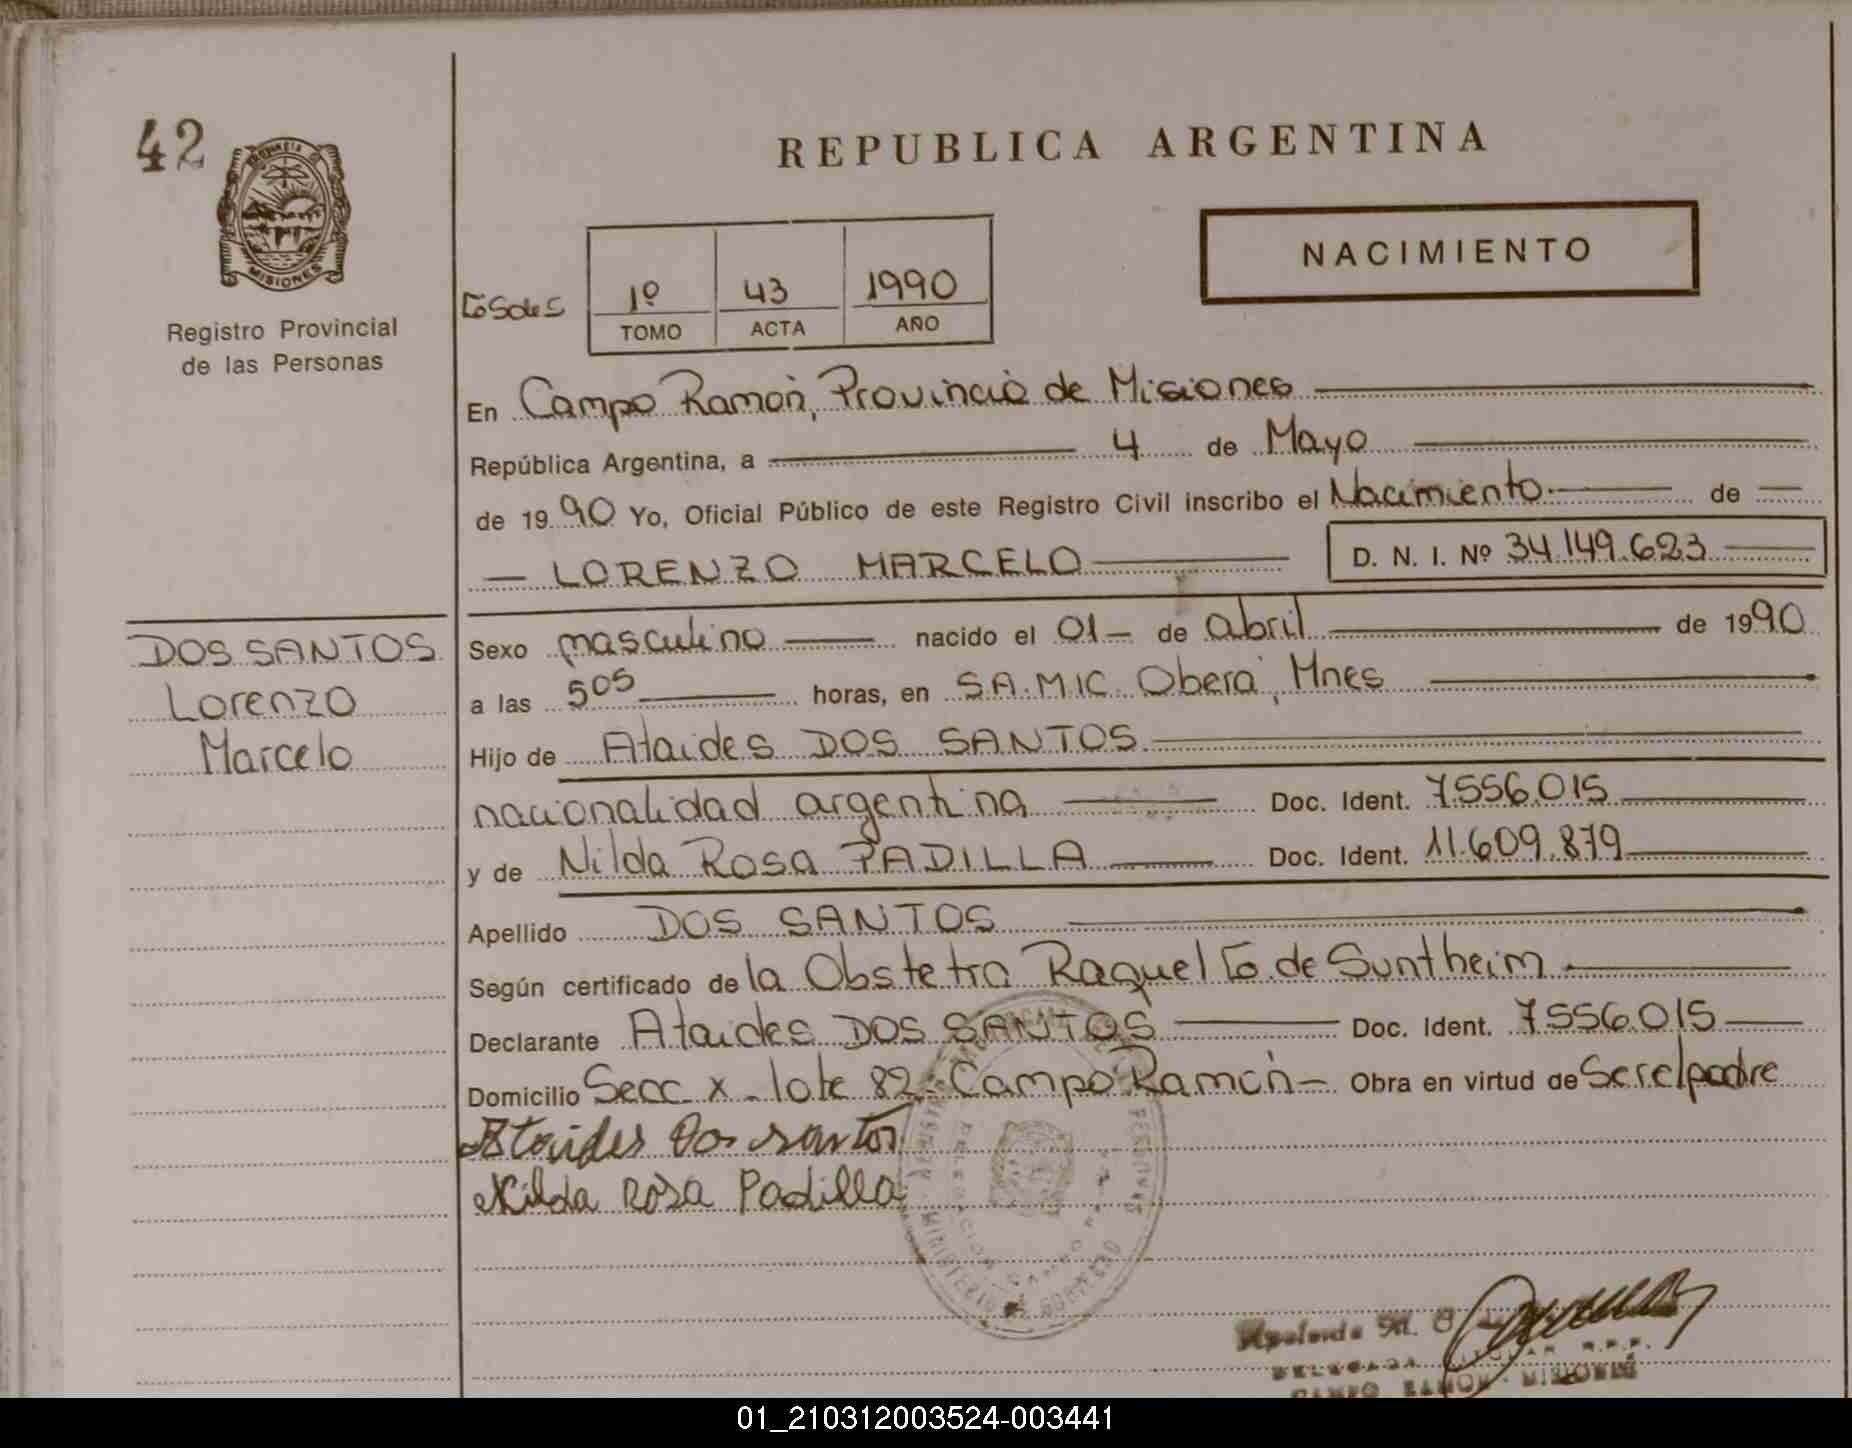 42
PROVINCIA DE
MISIONES
Registro Provincial
de las Personas
REPUBLICA ARGENTINA
NACIMIENTO
1º 43 1990
TOMO ACTA AÑO
En Campo Ramón, Provincia de Misiones
República Argentina, a 4 de Mayo
de 1990 Yo, Oficial Público de este Registro Civil inscribo el Nacimiento de
LORENZO MARCELO D. N. I. Nº 34.149.623
DOS SANTOS
Lorenzo
Marcelo
Sexo masculino nacido el 01 de abril de 1990
a las 505 horas, en S.A.M.I.C. Oberá, Mnes
Hijo de Ataides DOS SANTOS
nacionalidad argentina Doc. Ident. 7556.015
y de Nilda Rosa PADILLA Doc. Ident. 11.609.879
Apellido DOS SANTOS
Según certificado de la Obstetra Raquel de Suntheim
Declarante Ataides DOS SANTOS Doc. Ident. 7556.015
Domicilio Secc. X - lote 82 - Campo Ramón - Obra en virtud de Ser el padre
Ataides Dos santos
Nilda Rosa Padilla
MINISTERIO DE GOBIERNO
DELEGADA TITULAR R.P.P.
CAMPO RAMON - MISIONES
01_210312003524-003441